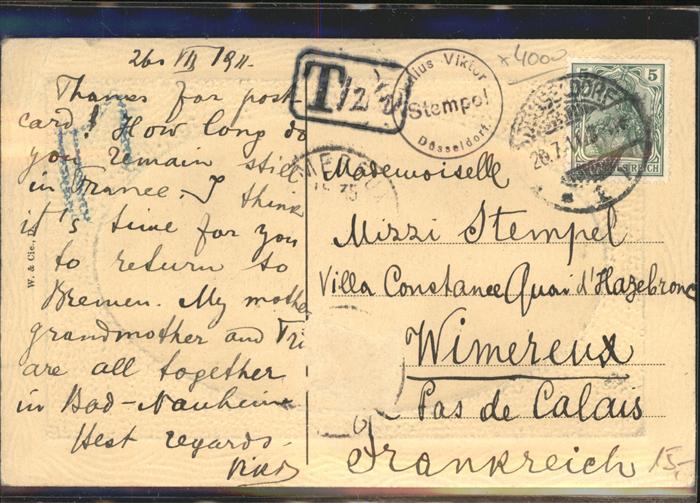 26. VII 1911.
Thanks for post-
card! How long do
you remain still
in France. I think
it's time for you
to return to
Bremen. My mother
grandmother and Fri
are all together
in Bad-Nauheim
Best regards.
W. & Cie., D.
T/20
Julius Viktor
Stempel
Düsseldorf
x4000
5
DÜSSELDORF
26.7.11
1
WIMEREUX
Mademoiselle
Mizzi Stempel
Villa Constance Quai d'Hazebrouc
Wimereux
Pas de Calais
Frankreich
15,-